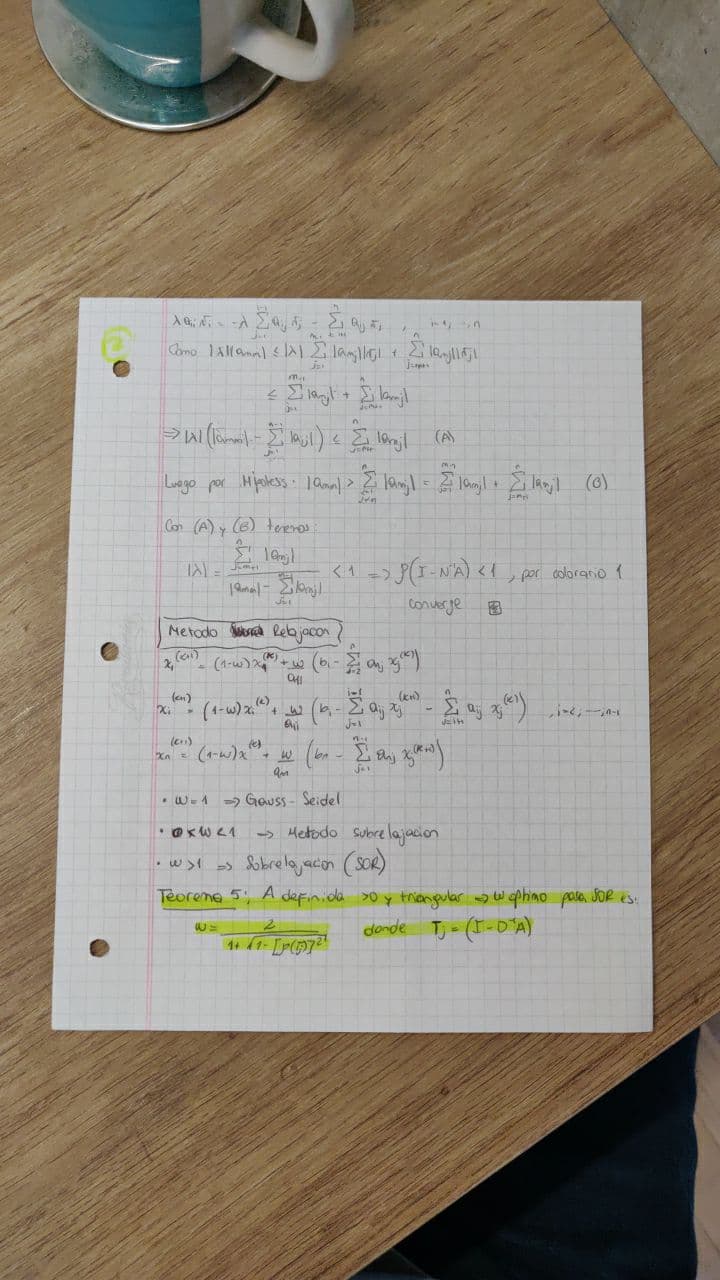 λ a_ii v_i = -λ Σ_{j=1}^{i-1} a_ij v_j - Σ_{j=i+1}^{n} a_ij v_j , i=1, ..., n
2
Como |λ||a_mm| ≤ |λ| Σ_{j=1}^{m-1} |a_mj||v_j| + Σ_{j=m+1}^{n} |a_mj||v_j|
≤ Σ_{j=1}^{m-1} |a_mj| + Σ_{j=m+1}^{n} |a_mj|
⇒ |λ| (|a_mm| - Σ_{j=1}^{m-1} |a_ij|) ≤ Σ_{j=m+1}^{n} |a_mj| (A)
Luego por Hipotesis. |a_mm| > Σ_{j=1, j≠m}^{n} |a_mj| = Σ_{j=1}^{m-1} |a_mj| + Σ_{j=m+1}^{n} |a_mj| (B)
Con (A) y (B) tenemos:
|λ| = Σ_{j=m+1}^{n} |a_mj| / (|a_mm| - Σ_{j=1}^{m-1} |a_mj|) < 1 ⇒ ρ(I-N⁻¹A) < 1 , por colorario 1
converge
Metodo Relajacion
x_1^(k+1) = (1-w)x_1^(k) + w/a_11 (b_1 - Σ_{j=2}^{n} a_1j x_j^(k))
x_i^(k+1) = (1-w)x_i^(k) + w/a_ii (b_i - Σ_{j=1}^{i-1} a_ij x_j^(k+1) - Σ_{j=i+1}^{n} a_ij x_j^(k)) , i=2, ..., n-1
x_n^(k+1) = (1-w)x^(k) + w/a_nn (b_n - Σ_{j=1}^{n-1} a_nj x_j^(k+1))
· w=1 ⇒ Gauss-Seidel
· 0<w<1 ⇒ Metodo subrelajacion
· w>1 ⇒ Sobrelajacion (SOR)
Teorema 5: A definida >0 y triangular ⇒ w optimo para SOR es:
w = 2 / (1+√(1-[ρ(T_j)]²)) donde T_j = (I-D⁻¹A)